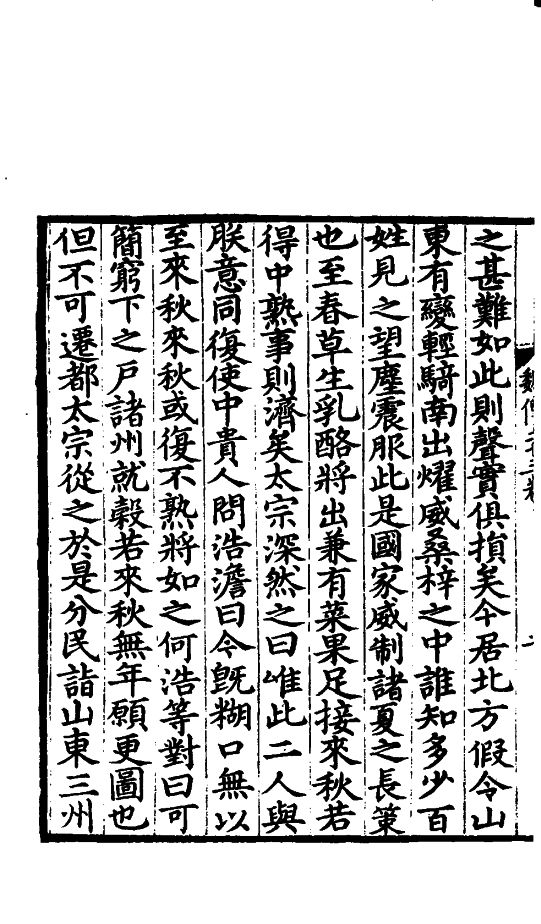 之甚難如此則聲實俱損矣今居北方假令山
東有變輕騎南出燿威桑梓之中誰知多少百
姓見之望塵震服此是國家威制諸夏之長策
也至春草生乳酪將出兼有菜果足接來秋若
得中熟事則濟矣太宗深然之曰唯此二人與
朕意同復使中貴人問浩澹曰今旣糊口無以
至來秋來秋或復不熟將如之何浩等對曰可
簡窮下之戸諸州就穀若來秋無年願更圖也
但不可遷都太宗從之於是分民詣山東三州